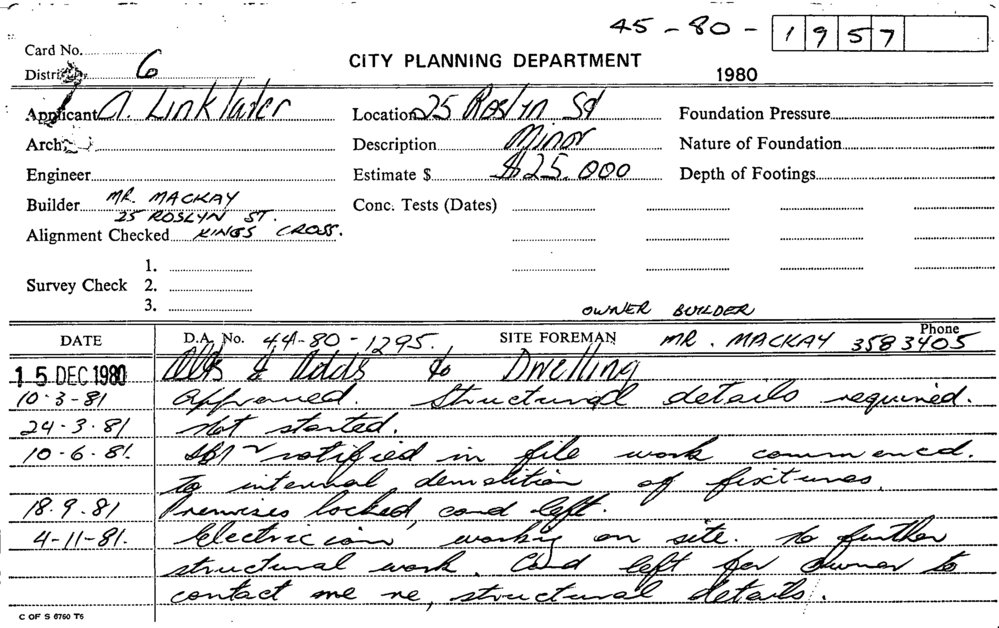 45-80-1957
Card No.
CITY PLANNING DEPARTMENT
District 6
1980
Applicant A. Linklater Location 25 Roslyn St Foundation Pressure
Arch. Description Minor Nature of Foundation
Engineer Estimate $ $25.000 Depth of Footings
Builder MR. MACKAY Conc. Tests (Dates)
25 ROSLYN ST.
Alignment Checked KINGS CROSS.
1.
Survey Check 2.
3.
OWNER BUILDER
DATE D.A. No. 44-80-1295. SITE FOREMAN MR. MACKAY Phone 3583405
15 DEC 1980 Alts & Adds to Dwelling
10-3-81 approved. Structural details required.
24-3.81 Not started.
10-6-81. notified in file work commenced.
to internal demolition of fixtures.
18.9.81 Premises locked, card left.
4-11-81. Electrician working on site. No further
structural work. Card left for owner to
contact me re, structural details.
C OF S 6760 T5